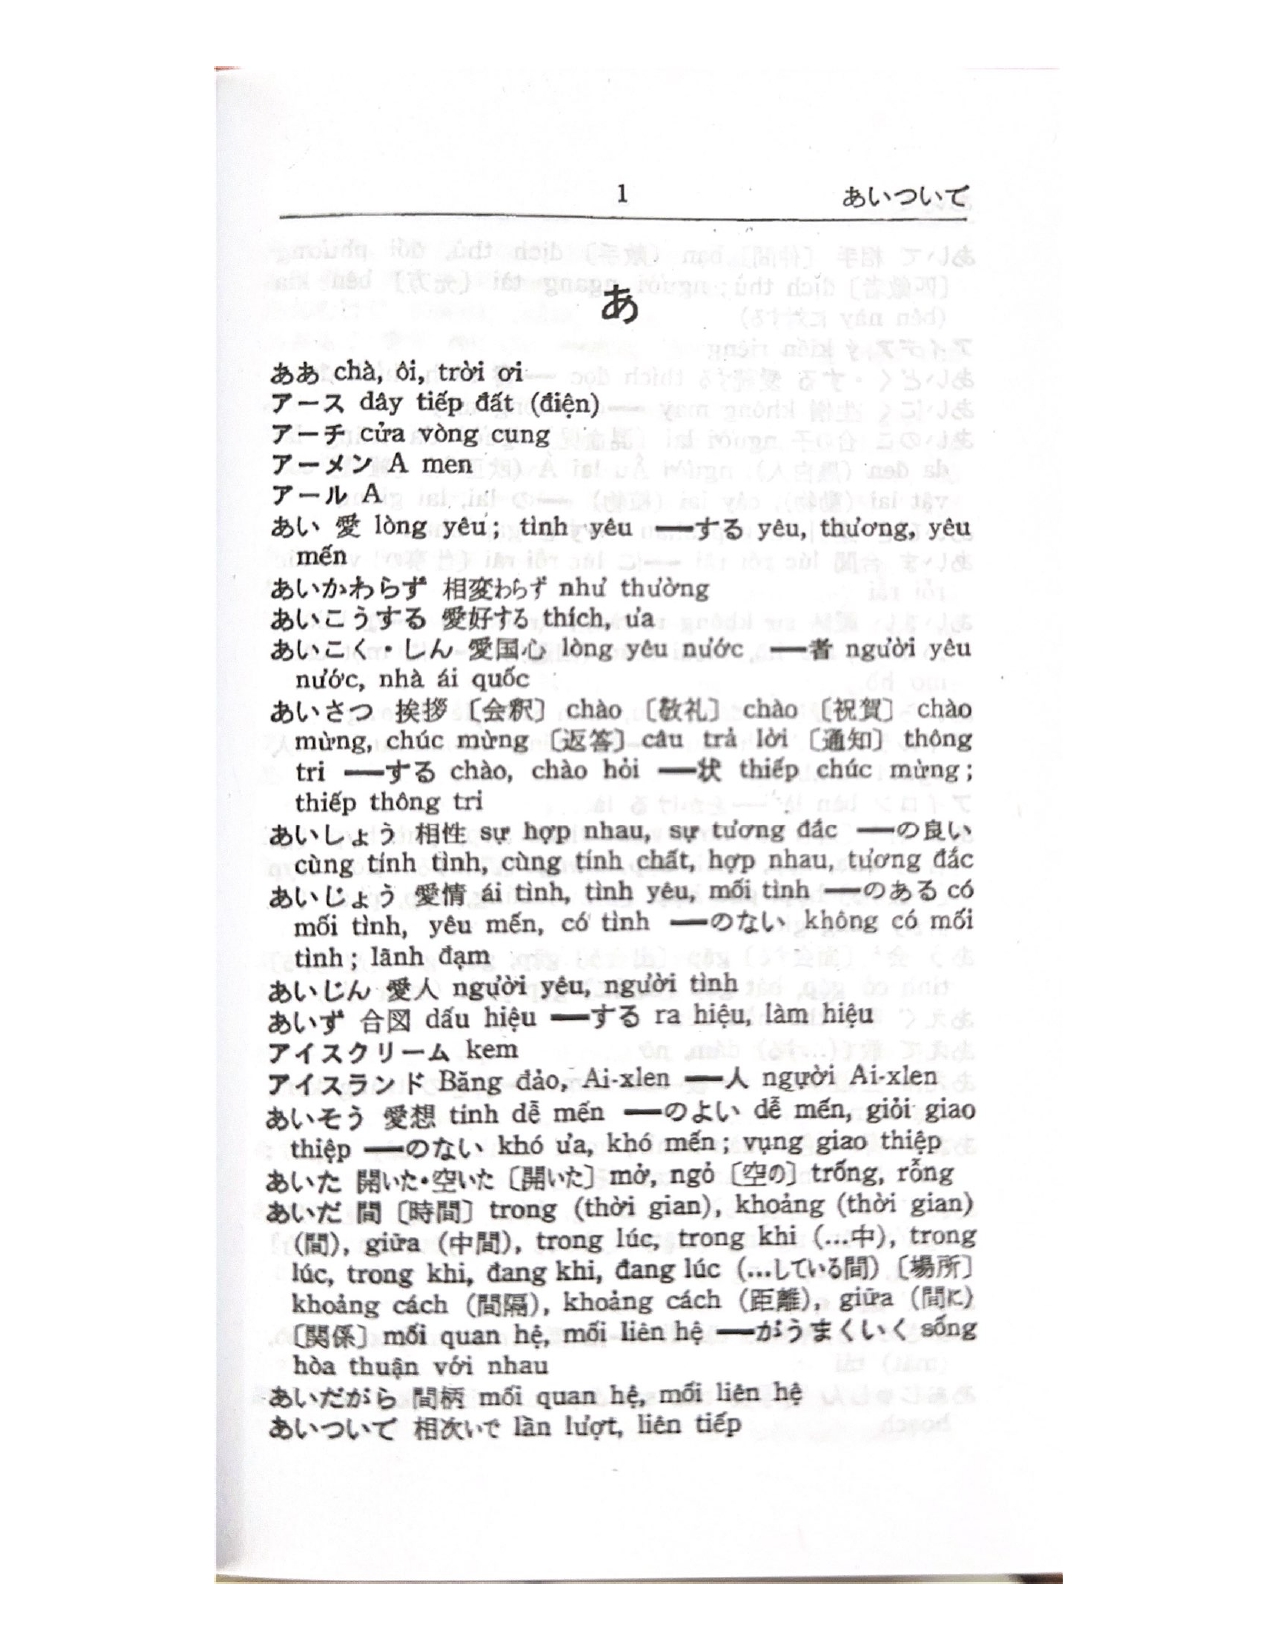 1 あいついで
あ
ああ chà, ôi, trời ơi
アース dây tiếp đất (điện)
アーチ cửa vòng cung
アーメン A men
アール A
あい 愛 lòng yêu; tình yêu ──する yêu, thương, yêu
mến
あいかわらず 相変わらず như thường
あいこうする 愛好する thích, ưa
あいこく・しん 愛国心 lòng yêu nước ──者 người yêu
nước, nhà ái quốc
あいさつ 挨拶〔会釈〕chào〔敬礼〕chào〔祝賀〕chào
mừng, chúc mừng〔返答〕câu trả lời〔通知〕thông
tri ──する chào, chào hỏi ──状 thiếp chúc mừng;
thiếp thông tri
あいしょう 相性 sự hợp nhau, sự tương đắc ──の良い
cùng tính tình, cùng tính chất, hợp nhau, tương đắc
あいじょう 愛情 ái tình, tình yêu, mối tình ──のある có
mối tình, yêu mến, có tình ──のない không có mối
tình; lãnh đạm
あいじん 愛人 người yêu, người tình
あいず 合図 dấu hiệu ──する ra hiệu, làm hiệu
アイスクリーム kem
アイスランド Băng đảo, Ai-xlen ──人 người Ai-xlen
あいそう 愛想 tính dễ mến ──のよい dễ mến, giỏi giao
thiệp ──のない khó ưa, khó mến; vụng giao thiệp
あいた 開いた・空いた〔開いた〕mở, ngỏ〔空の〕trống, rỗng
あいだ 間〔時間〕trong (thời gian), khoảng (thời gian)
(間), giữa (中間), trong lúc, trong khi (…中), trong
lúc, trong khi, đang khi, đang lúc (…している間)〔場所〕
khoảng cách (間隔), khoảng cách (距離), giữa (間に)
〔関係〕mối quan hệ, mối liên hệ ──がうまくいく sống
hòa thuận với nhau
あいだがら 間柄 mối quan hệ, mối liên hệ
あいついで 相次いで lần lượt, liên tiếp